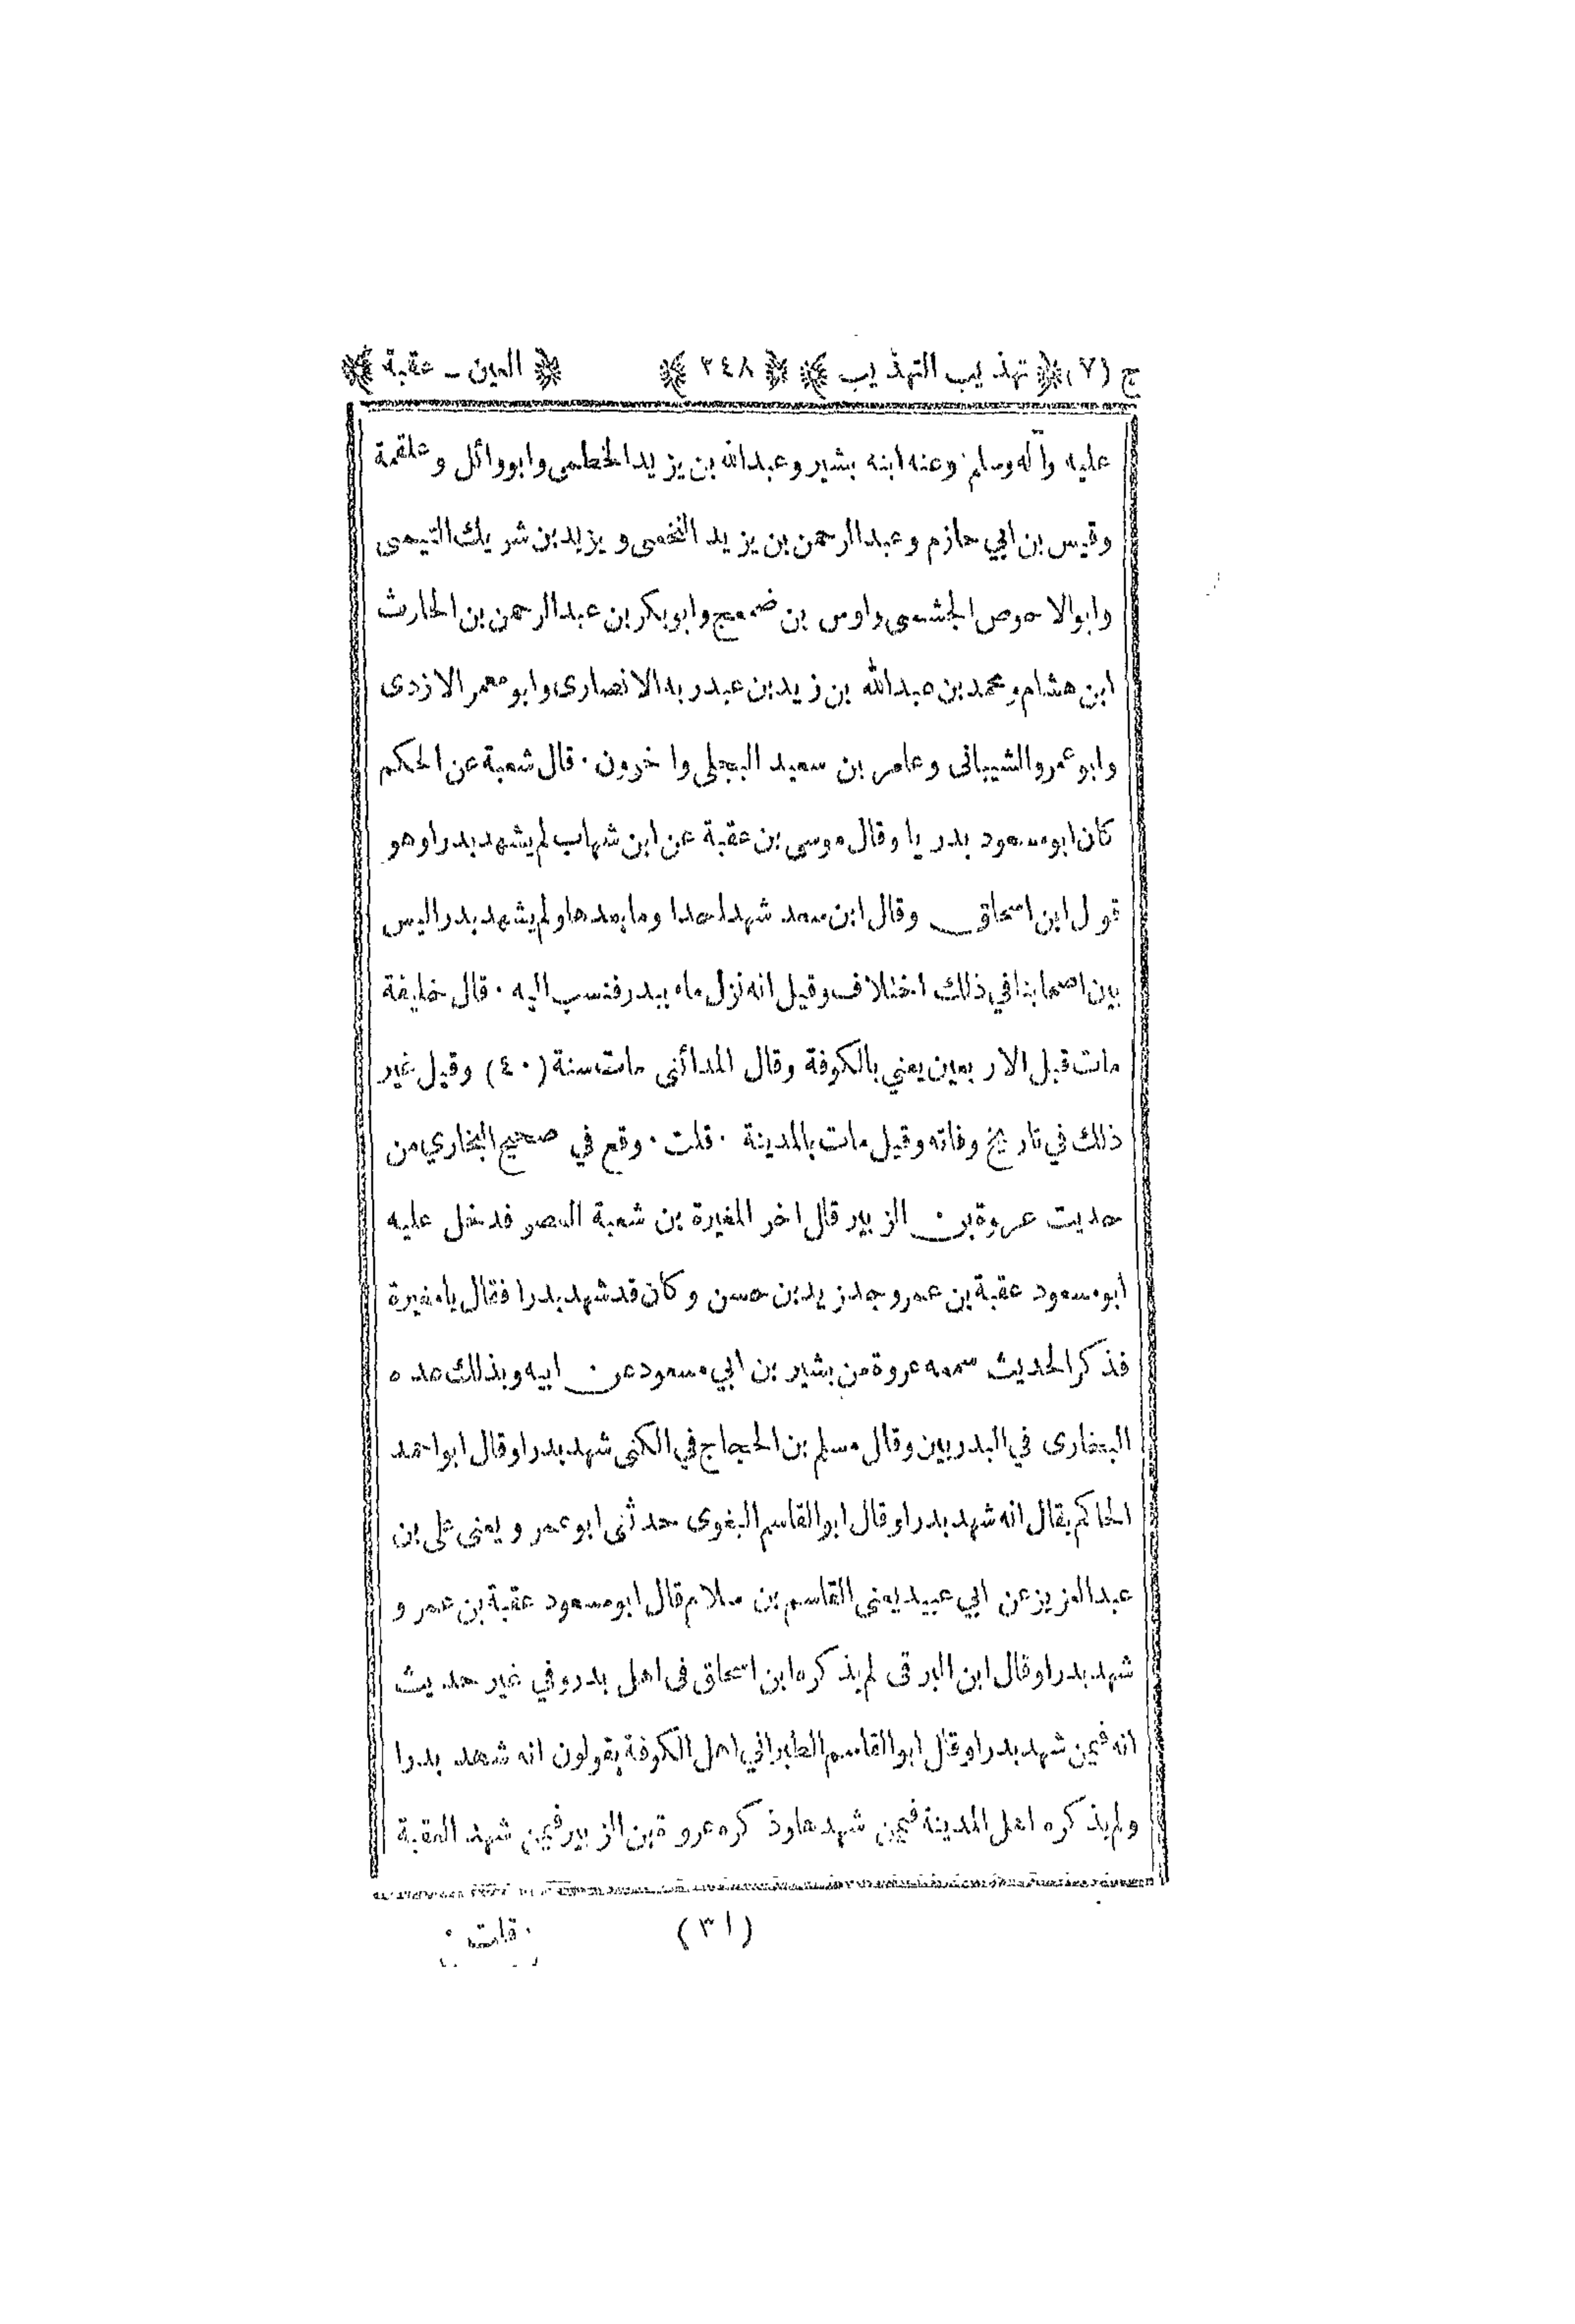 ج (٧) ﴿ تهذيب التهذيب ﴾ ﴿ ٢٤٨ ﴾ ﴿ العين - عقبة ﴾
عليه وآله وسلم وعنه ابنه بشير وعبد الله بن يزيد الخطمى وابووائل وعلقمة
وقيس بن ابي حازم وعبد الرحمن بن يزيد النخعى ويزيد بن شريك التيمى
وابو الاحوص الجشمى واوس بن ضمعج وابو بكر بن عبد الرحمن بن الحارث
ابن هشام ومحمد بن عبد الله بن زيد بن عبد ربه الانصارى وابو معمر الازدى
وابو عمرو الشيبانى وعامر بن سعيد البجلى واخرون · قال شعبة عن الحكم
كان ابو مسعود بدريا وقال موسى بن عقبة عن ابن شهاب لم يشهد بدرا وهو
قول ابن اسحاق وقال ابن سعد شهد احدا وما بعدها ولم يشهد بدرا ليس
بين اصحابنا في ذلك اختلاف وقيل انه نزل ماء ببدر فنسب اليه · قال خليفة
مات قبل الاربعين يعني بالكوفة وقال المدائنى مات سنة (٤٠) وقيل غير
ذلك في تاريخ وفاته وقيل مات بالمدينة · قلت · وقع في صحيح البخاري من
حديث عروة بن الزبير قال اخر المغيرة بن شعبة العصر فدخل عليه
ابو مسعود عقبة بن عمرو جد زيد بن حسن وكان قد شهد بدرا فقال يا مغيرة
فذكر الحديث سمعه عروة من بشير بن ابي مسعود عن ابيه وبذلك عده
البخارى في البدريين وقال مسلم بن الحجاج في الكنى شهد بدرا وقال ابو احمد
الحاكم يقال انه شهد بدرا وقال ابو القاسم البغوى حدثنى ابو عمرو يعنى على بن
عبد العزيز عن ابي عبيد يعنى القاسم بن سلام قال ابو مسعود عقبة بن عمرو
شهد بدرا وقال ابن البرقى لم يذكره ابن اسحاق فى اهل بدر وفي غير حديث
انه فيمن شهد بدرا وقال ابو القاسم الطبراني اهل الكوفة يقولون انه شهد بدرا
ولم يذكره اهل المدينة فيمن شهدها وذكره عروة بن الزبير فيمن شهد العقبة
(٣١) · قلت ·